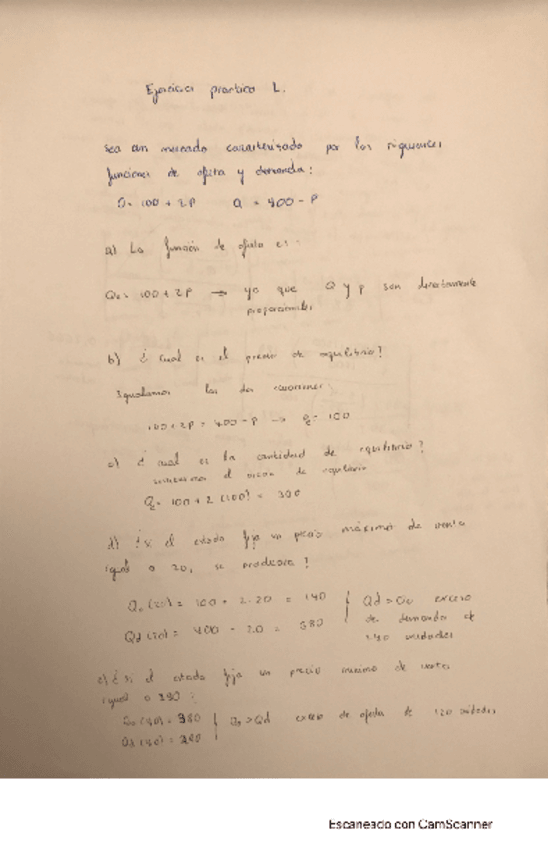 Ejercicio practico 1.
Sea un mercado caracterizado por las siguientes
funciones de oferta y demanda:
Q= 100 + 2P Q = 400 - P
a) La función de oferta es:
Qo= 100 + 2P → ya que Q y P son directamente
proporcionales
b) ¿ cual es el precio de equilibrio?
Igualamos las dos ecuaciones
100 + 2P = 400 - P → = 100
c) ¿ cual es la cantidad de equilibrio?
el precio de equilibrio
Q = 100 + 2 (100) = 300
d) ¿si el estado fija un precio máximo de venta
igual a 20, se producira?
Qo (20) = 100 + 2·20 = 140 Qd > Qo exceso
Qd (20) = 400 - 20 = 380 de demanda de
240 unidades
e) ¿ si el estado fija un precio minimo de venta
igual a
Qo > Qd exceso de oferta de 120 unidades
Escaneado con CamScanner